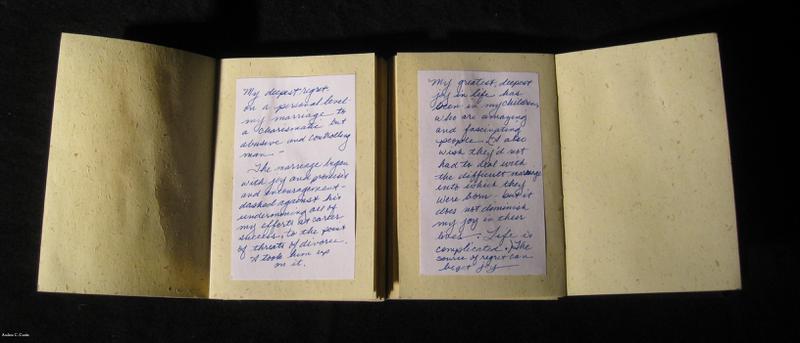 My deepest regret
on a personal level -
my marriage to
a charismatic but
abusive and controlling
man -
The marriage began
with joy and promise
and encouragement -
dashed against his
undermining all of
my efforts at career
success, to the point
of threats of divorce.
I took him up
on it.
My greatest, deepest
joy in life has
been in my children,
who are amazing
and fascinating
people. I also
wish they'd not
had to deal with
the difficult marriage
into which they
were born - but it
does not diminish
my joy in their
lives. Life is
complicated. The
source of regret can
beget joy